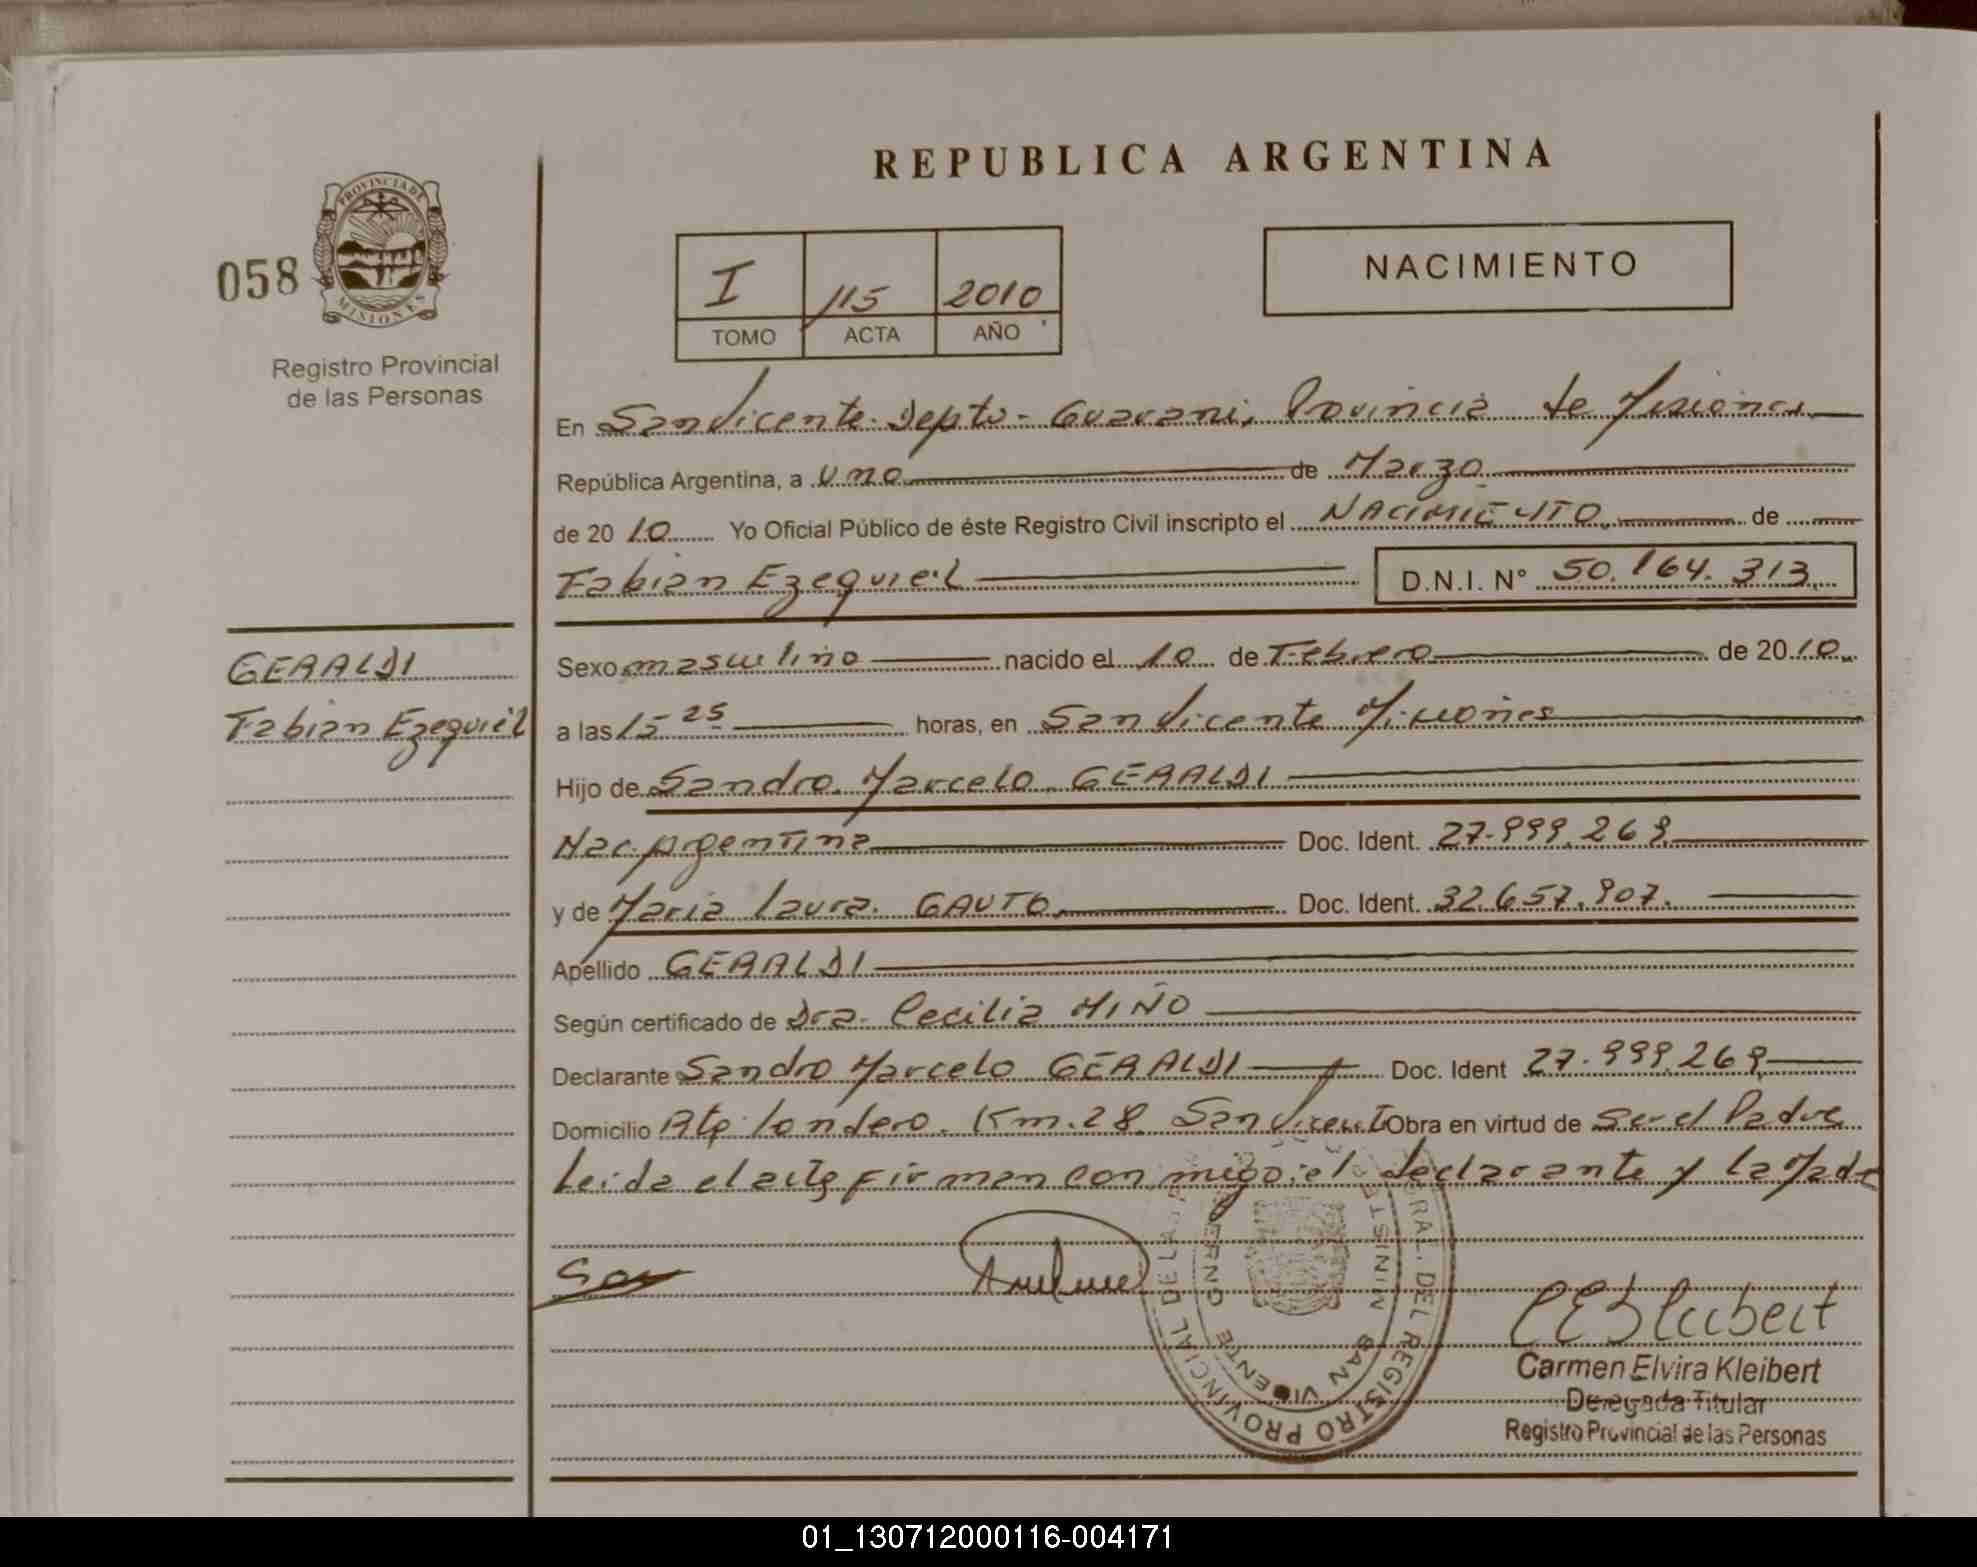 REPUBLICA ARGENTINA
058
PROVINCIA DE
MISIONES
Registro Provincial
de las Personas
I 115 2010
TOMO ACTA AÑO
NACIMIENTO
En San Vicente Depto - Guarani, Provincia de Misiones
República Argentina, a uno de Marzo
de 2010 Yo Oficial Público de éste Registro Civil inscripto el NACIMIENTO de
Fabian Ezequiel D.N.I. N° 50.164.313
GERALDI
Fabian Ezequiel
Sexo masculino nacido el 10 de Febrero de 2010
a las 15 25 horas, en San Vicente Misiones
Hijo de Sandro Marcelo GERALDI
Nac. Argentina Doc. Ident. 27.999.269
y de Maria Laura GAUTO Doc. Ident. 32.657.907.
Apellido GERALDI
Según certificado de Dra. Cecilia MIÑO
Declarante Sandro Marcelo GERALDI Doc. Ident 27.999.269
Domicilio Km. 28 San Vicente Obra en virtud de ser el Padre
Leida el acta firman con migo: el declarante y la Madre
REGISTRO PROVINCIAL DE LAS
SAN VICENTE
CEKleibert
Carmen Elvira Kleibert
Delegada Titular
Registro Provincial de las Personas
01_130712000116-004171